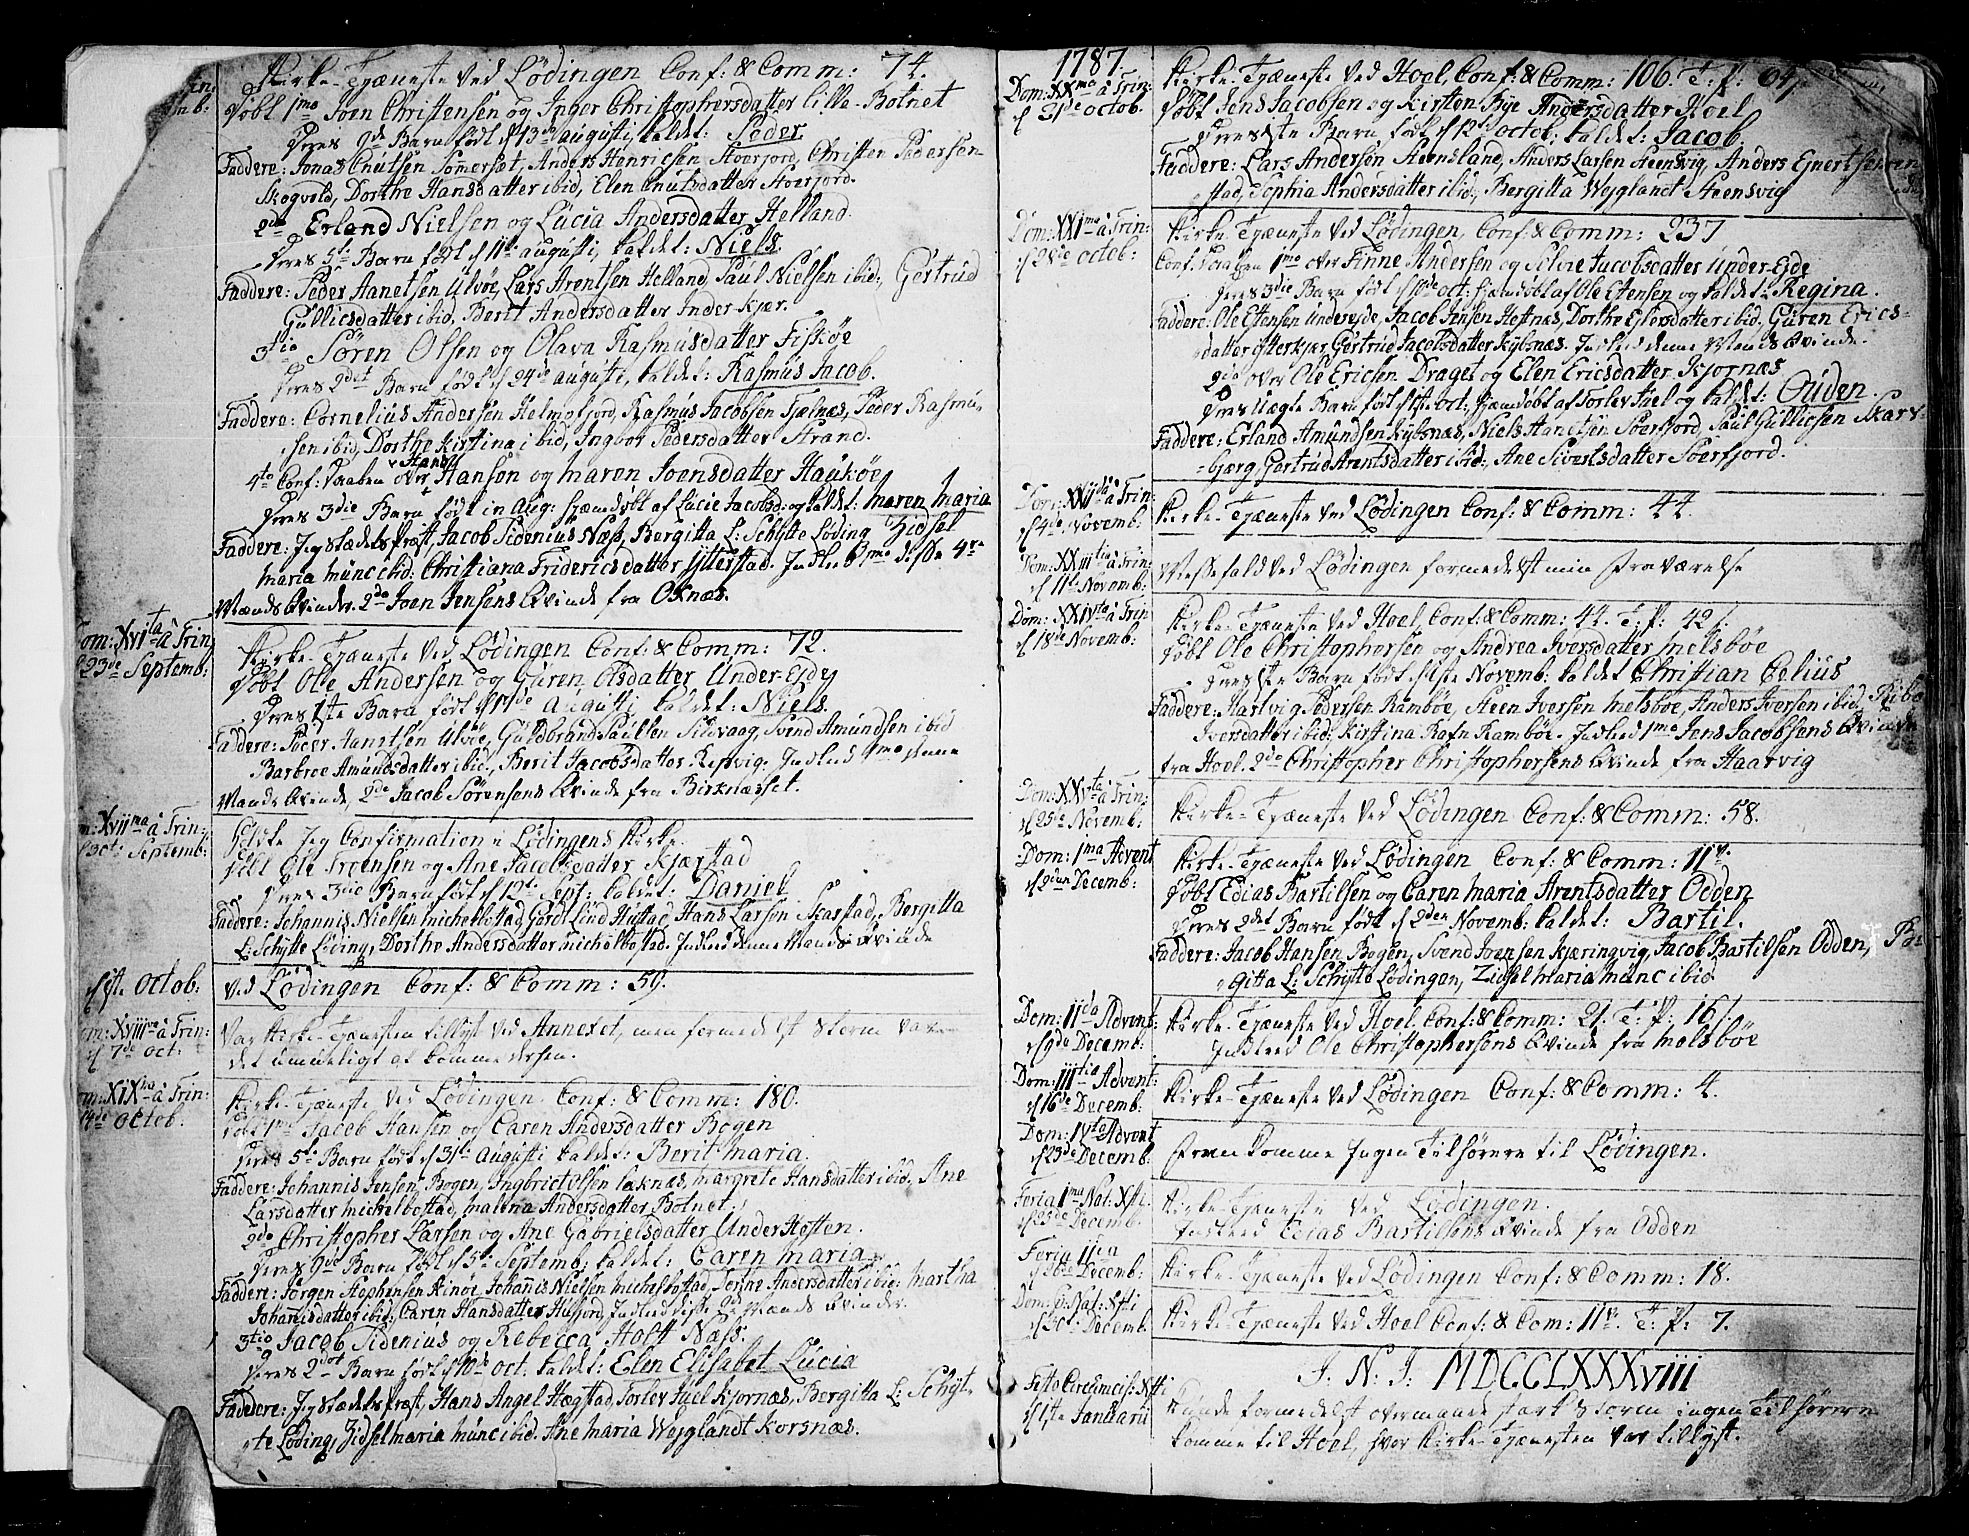 Kirke-Tjæneste ved Lødingen Conf: & Comm: 74.
Døbt 1mo Joen Christensen og Inger Christophersdatter lille-Botnet
Deres 9de Barn født d 13de augusti, kaldet: Peder
Faddere: Jonas Cnutsen Somerset, Anders Henricsen Stoerfjord, Christen Pedersen
Skogvold, Dorthe Hansdatter ibid, Elen Cnutsdatter Stoerfjord.
2do Erland Nielsen og Lucia Andersdatter Helland.
Deres 5te Barn født d 11te augusti, kaldet: Niels.
Faddere: Peder Hanetsen Ulvøe, Lars Arentsen Helland, Paul Nielsen ibid:, Gertrud
Gullicsdatter ibid. Berit Andersdatter Inder-kjær.
3tio Sören Olsen og Olava Rasmusdatter Fiskøe
Deres 2det Barn født d 24de augusti, kaldet: Rasmus Jacob.
Faddere: Cornelius Andersen Helmofjord, Rasmus Jacobsen Tjelnæs, Peder Rasmu-
sen ibid, Dorthe Kirstina ibid, Ingbor Pedersdatter Strand.
4to Conf: Daaben over Hans Hansen og Maren Joensdatter Haukøe
Deres 3die Barn født in Aug: hjemdøbt af Lucie Jacobsd: og kaldet: Maren Maria
Faddere: Jeg stædets Præst, Jacob Sidenius Næss, Bergitta L: Schytte Løding Zidsel
Maria Munc ibid: Christiana Fridericsdatter Ytterstad. Indled 1mo disse 4re
Mænds Qvinder. 2do Joen Jensens Qvinde fra Oxnæs.
Dom: XVIta â Trin
23de Septemb:
Kirke-Tjæneste ved Lødingen Conf: & Comm: 72.
Døbt Ole Andersen og Guren Olsdatter Under-Ejde
Deres 1ste Barn født d augusti kaldet: Niels.
Faddere: Peder Hanetsen Ulvøe, Guldbrand Paulsen Sildvaag, Svend Amundsen ibid
Barbroe Amundsdatter ibid:, Berit Jacobsdatter Repvig. Indled 1mo denne
Mands Qvinde, 2do Jacob Sörensens Qvinde fra Birknæsset.
XVIIma â Trin:
30te Septemb:
Holdte Jeg Confirmation i Lødingens Kirke.
Døbt Ole Troensen og Ane Jacobsdatter Kjærstad
Deres 3die Barn født d 12te Sept: kaldet: Daniel
Faddere: Johannis Nielsen Michelbostad, Gjordt Lind Hustad, Hans Larsen Skarstad, Bergitta
L: Schytte Løding, Dorthe Andersdatter Michelbostad. Indled denne Mands Qvinde
d 1ste Octob.
ved Lødingen Conf: & Comm: 59.
XVIIIva â Trin:
d 7de Oct:
Var Kirke-Tjænesten tillyst ved Annexet, men formedelst Storm var
det umueligt at komme derhen.
XIXna â Trin:
14de Octob.
Kirke-Tjæneste ved Lødingen Conf: & Comm: 180.
Døbt 1mo Jacob Hansen og Caren Andersdatter Bogen
Deres 5te Barn født d 31te Augusti kaldet: Berit Maria.
Faddere: Johannis Jensen Bogen, Ingbrict Olsen Læknæs, Margrete Hansdatter ibid, Ane
Larsdatter Michelbostad, Malena Andersdatter Botnet.
2do Christopher Larsen og Ane Gabrielsdatter Under Hosten.
Deres 9de Barn født d 5te Septemb: kaldet: Caren Maria
Faddere: Jørgen Stephensen Rinøe, Johanis Nielsen Michelbostad, Torine Andersdatter ibid: Martha
Johanisdatter ibid, Caren Hansdatter Husfjord, Indled disse 2de Mænds Qvinder.
3tio Jacob Sidenius og Rebecca Holst Næss.
Deres 2det Barn født d 10de Oct. kaldet: Elen Elisabet Lucia
Faddere: Jeg stædets Præst, Hans Angel Hægstad, Torlev Juel Kjornæs, Bergitta L: Schyt-
te Løding, Zidsel Maria Munc ibid. Ane Maria Wejglandt Korsnæs.
1787.
Dom: XXma â Trin:
d 21de Octob.
Kirke-Tjæneste ved Hoel, Conf: & Comm: 106. T. P. 64
Døbt Jens Jacobsen og Kirsten Bye Andersdatter Hoel
Deres 1ste Barn født d 12te Octob: kaldet: Jacob.
Faddere: Lars Andersen Steensland, Anders Larsen Steensvig, Anders Ejnertsen
stad, Sophia Andersdatter ibid:, Bergitta Wejglandt Steensvig
Dom: XXIma â Trin:
d 28de Octob:
Kirke-Tjæneste ved Lødingen, Conf: & Comm: 237
Conf: Daaben 1mo over Finne Andersen og Jacobsdatter Under-Ejde
Deres 3die Barn født d Oct: hjemdøbt af Ole Etensen og kaldet: Regina.
Faddere: Ole Etensen Underejde, Jacob Jensen Heftnæs, Dorthe Ejlersdatter ibid, Guren Erics-
datter Ytterkjær, Gertrud Jacobsdatter Kybsnæs. Indled denne Mands Qvinde.
2do over Ole Ericsen Draget og Elen Ericsdatter Kjornæs
Deres Uægte Barn født d 1ste Oct: hjemdøbt af Torlev Juel og kaldet: Ouden.
Faddere: Erland Amundsen Kybsnæs, Niels Hanetsen Stoerfjord, Paul Gullicsen Skars-
bjærg, Gertrud Arentsdatter ibid:, Ane Sivertsdatter Stoerfjord.
Dom: XXIIda â Trin:
d 4de Novemb:
Kirke-Tjæneste ved Lødingen Conf: & Comm: 44.
Dom: XXIIItia â Trin:
d 11te Novemb:
Messefald ved Lødingen formedelst min Fraværelse
Dom: XXIVta â Trin
d 18de Novemb:
Kirke-Tjæneste ved Hoel, Conf: & Comm: 44. T. P: 42.
Døbt Ole Christophersen og Andrea Iversdatter Melsbøe
Deres 1ste Barn født d 1ste Novemb: kaldet Christian Celius
Faddere: Hartvig Pedersen Rambøe, Steen Iversen Melsbøe, Anders Iversen ibid.
Iversdatter ibid: Kirstina Rafn Rambøe. Indled 1mo Jens Jacobsens Qvinde
fra Hoel. 2do Christopher Christophersens Qvinde fra Haarvig
Dom: XXVta â Trin:
d 25de Novemb:
Kirke-Tjæneste ved Lødingen Conf: & Comm: 58.
Dom: 1ma Advent
d 2den Decemb:
Kirke-Tjæneste ved Lødingen Conf: & Comm: 11ve
Døbt Edias Bartilsen og Caren Maria Arentsdatter Odden
Deres 2det Barn født d 2den Novemb: kaldet: Bartil.
Faddere: Jacob Hansen Bogen, Svend Joensen Kjæringvig, Jacob Bartilsen Odden, Ber-
gitta L: Schytte Lødingen, Zidsel Maria Munc ibid.
Dom: IIda Advent:
d 9de Decemb:
Kirke-Tjæneste ved Hoel, Conf: & Comm: 21. T. P: 16.
Indleed Ole Christophersens Qvinde fra Melsbøe
Dom: IIItia Advent:
d 16de Decemb:
Kirke-Tjæneste ved Lødingen Conf: & Comm: 4.
Dom: IVta Advent
d 23de Decemb:
Fremkomme Ingen Tilhørere til Lødingen.
Feria 1ma Nat: Xsti.
d 25de Decemb.
Kirke-Tjæneste ved Lødingen.
Indleed Edias Bartilsens Qvinde fra Odden
Feria IIda
d 26de Decemb:
Kirke-Tjæneste ved Lødingen Conf: & Comm: 18.
Dom: p: Nat: Xsti
d 30te Decemb.
Kirke-Tjæneste ved Hoel Conf: & Com: 11ve. T. P: 7.
J. N. J. MDCCLXXXVIII
Festo Circumcis: Xsti
d 1ste Januarii
Kunde formedelst overmaade stærk Storm ingen Tilhørere
komme til Hoel, hvor Kirke-Tjænesten var tillyst.